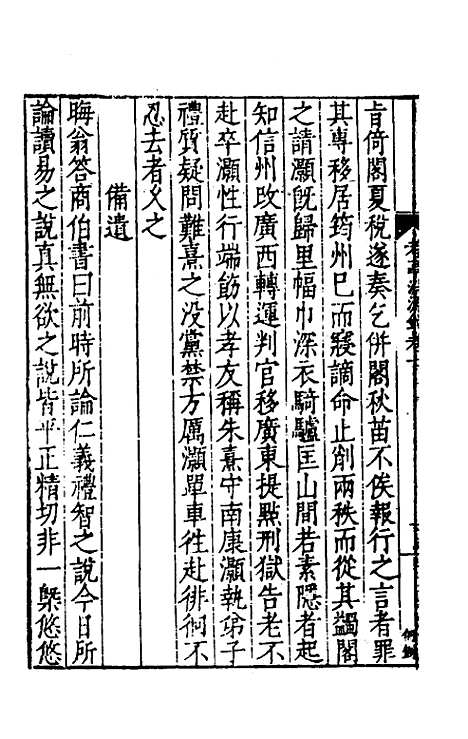 肯倚閣夏稅遂奏乞併閣秋苗不俟報行之言者罪
其專移居筠州巳而寢謫命止削兩秩而從其蠲閣
之請灝旣歸里幅巾深衣騎驢匡山間若素隱者起
知信州改廣西轉運判官移廣東提點刑獄告老不
赴卒灝性行端飭以孝友稱朱熹守南康灝執弟子
禮質疑問難熹之没黨禁方厲灝單車徃赴徘徊不
忍去者乆之
備遺
晦翁答商伯書曰前時所論仁義禮智之說今日所
論讀易之說真無欲之說皆平正精切非一槩悠悠